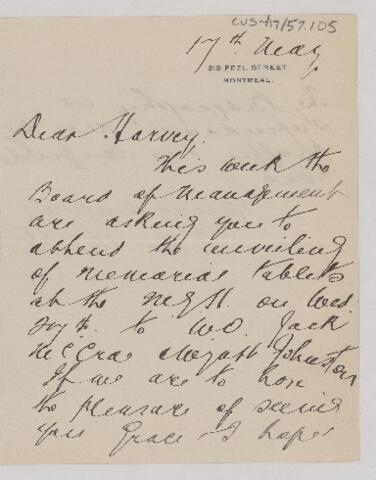 CUS417/57.105
17th May
PEEL STREET
MONTREAL.
Dear Harvey.
This week the
Board of Management
are asking you to
attend the unveiling
of memorial tablets
at the M.G.H. on Wed.
to Jack
McCrae Johnston
If we are to have
the pleasure of seeing
you Grace & I hope